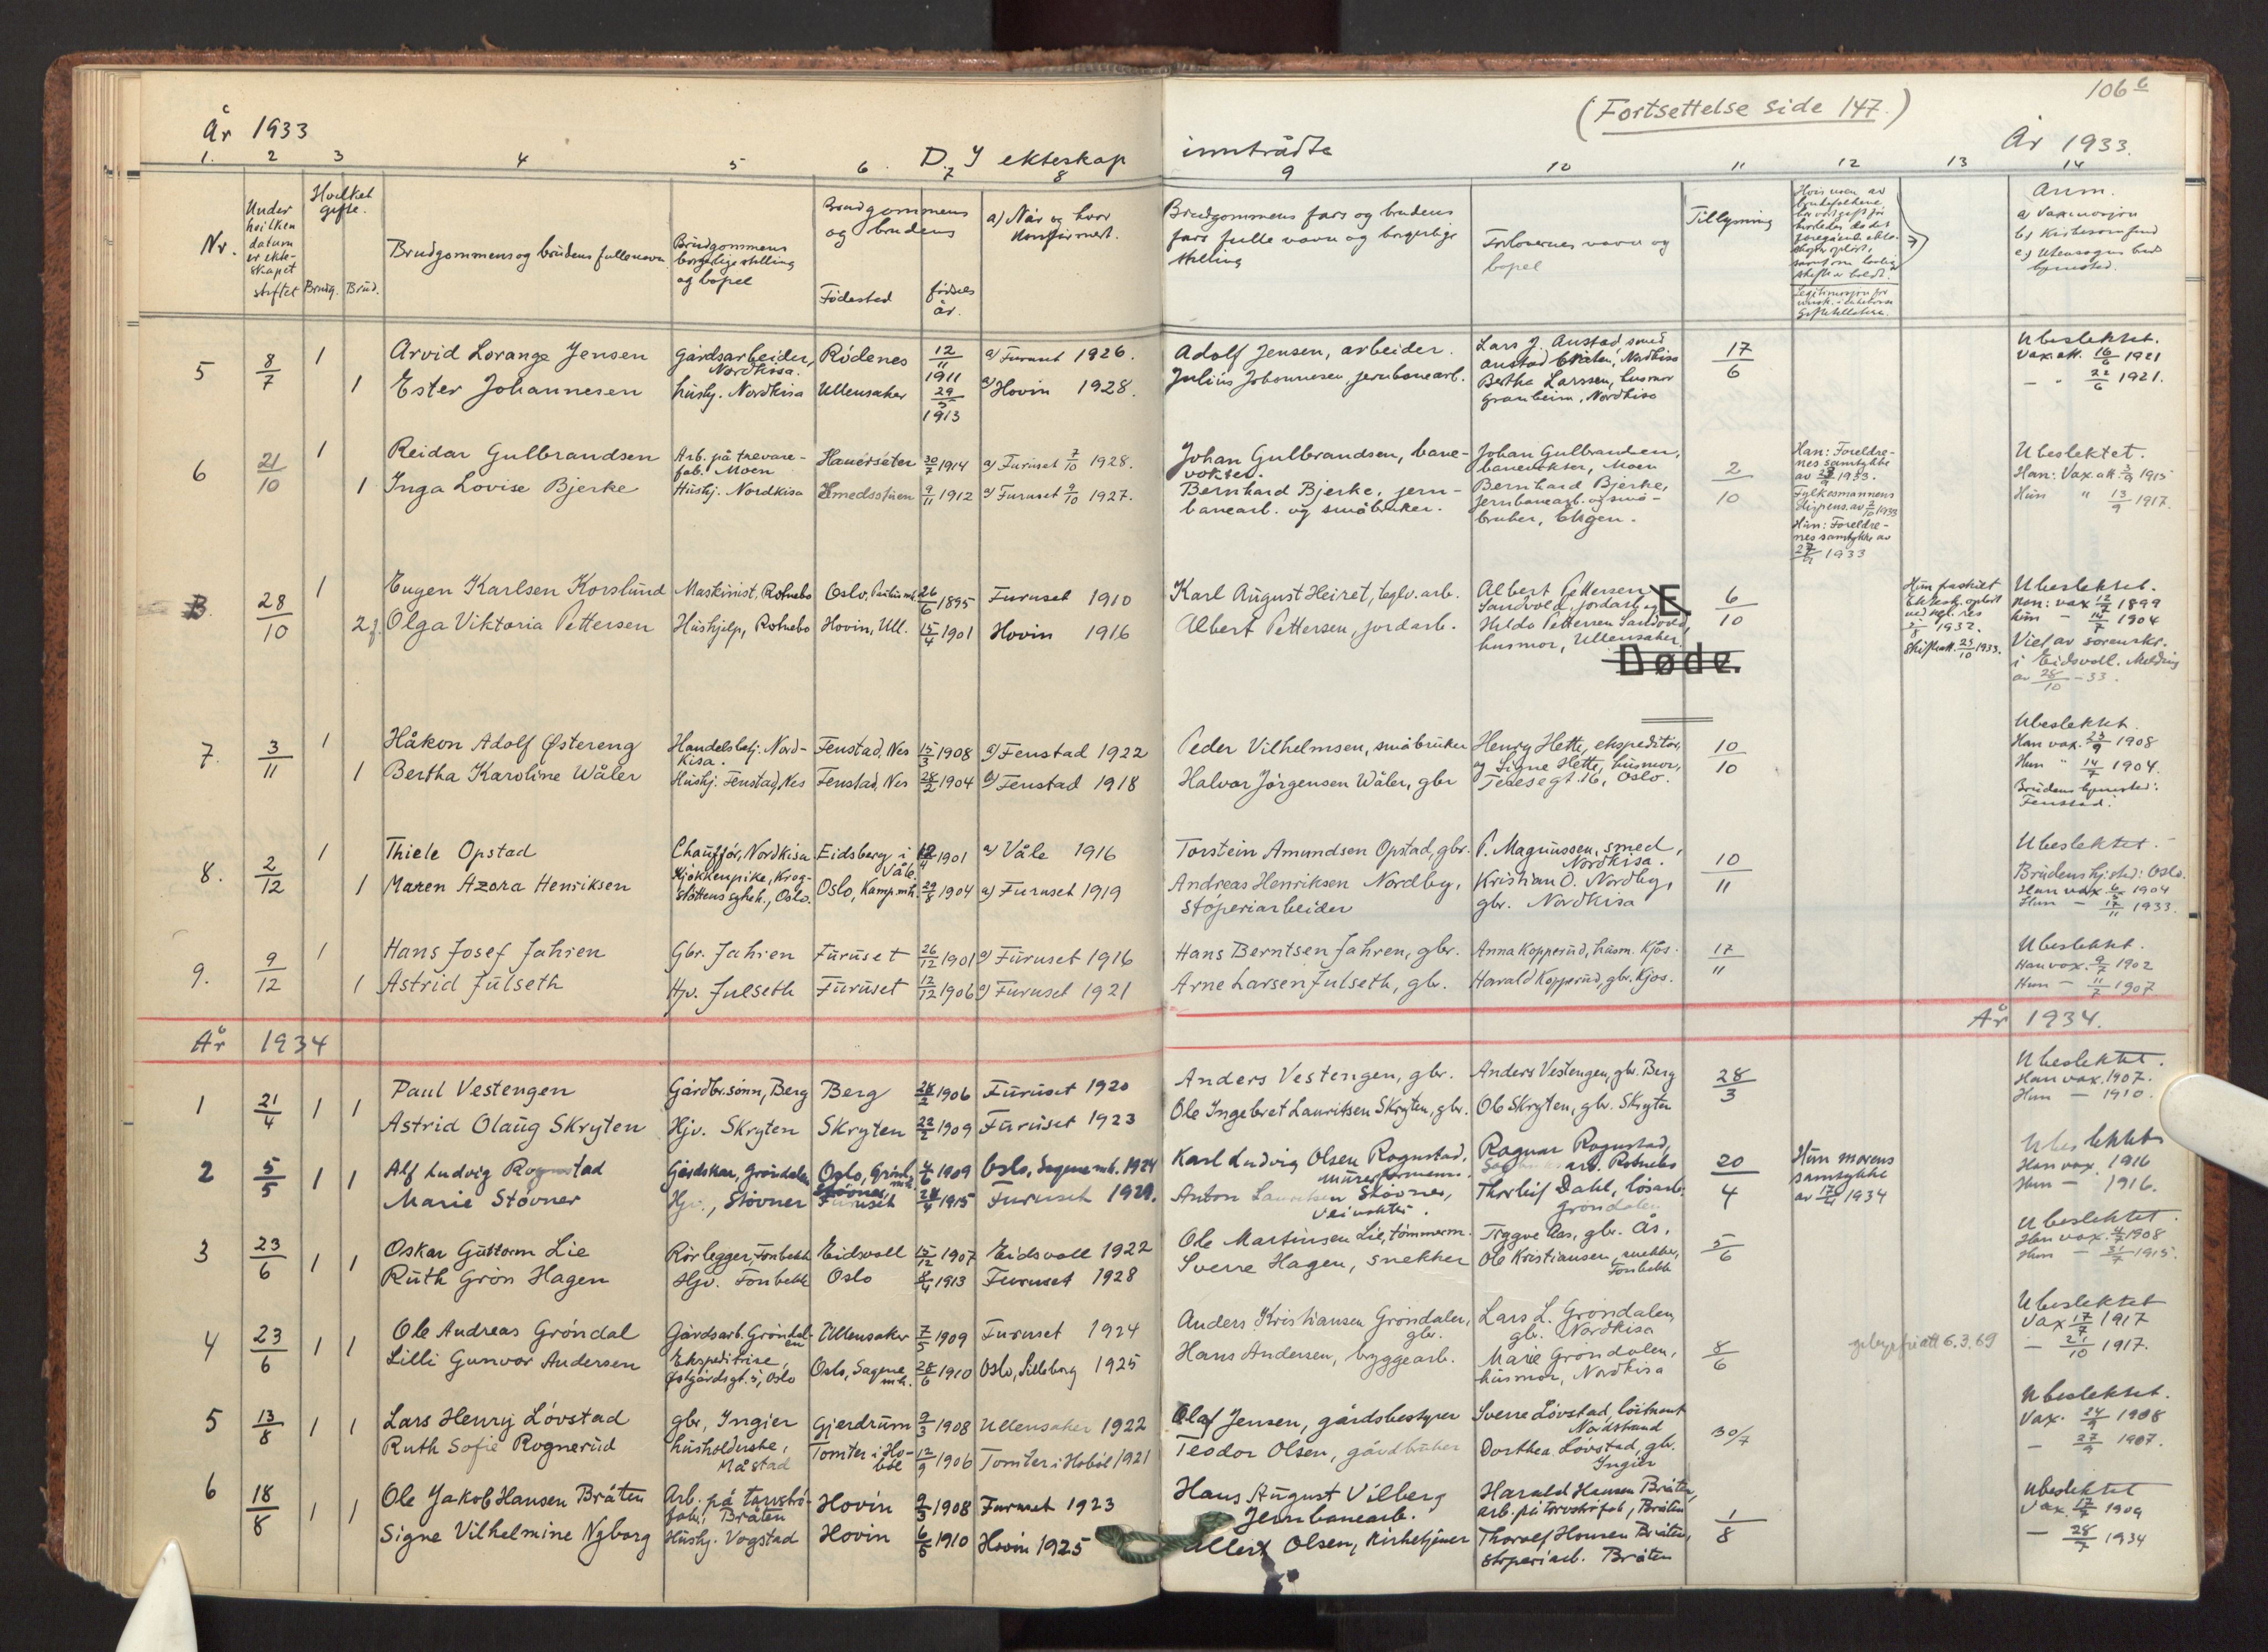 106 b
(Fortsettelse side 147.)
År 1933
D. I ekteskap inntrådte
År 1933.
1. 2 3 4 5 6. 7 8 9 10 11 12 13 14
Nr.
Under hvilken datum er ekteskapet stiftet
Hvilket gifte.
Brudg. Brud.
Brudgommens og brudens fulle navn
Brudgommens borgerlige stilling og bopel
Brudgommens og brudens
Fødested
fødsels år.
a) Når og hvor konfirmert.
Brudgommens fars og brudens fars fulle navn og borgerlige stilling
Forlovernes navn og bopel
Tillysning
Anm.
5 8/7 1 Arvid Lorange Jensen Gårdsarbeider, Nordkisa. Rödenes 12/11 1911 a) Furuset 1926. Adolf Jensen, arbeider. Lars J. Austad smed 17/6 Ubeslektet.
Vax. att. 16/6 1921
1 Ester Johannesen Hushj. Nordkisa Ullensaker 29/5 1913 a) Hovin 1928. Julius Johannesen jernbanearb. Bertha Larssen, husmor
Granheim, Nordkisa
22/6 1921.
6 21/10 1 Reidar Gulbrandsen Arb. på trevarefab. Moen Hauerseter 30/7 1914 a) Furuset 7/10 1928. Johan Gulbrandsen, banevokter. Johan Gulbrandsen, banevokter, Moen 2/10 Han: Foreldrenes samtykke Ubeslektet.
1 Inga Lovise Bjerke Hushj. Nordkisa Smedsstuen 9/11 1912 a) Furuset 9/10 1927. Bernhard Bjerke, jernbanearb. og småbruker. Bernhard Bjerke, jernbanearb. og småbruker,
Hun 13/9 1917.
Fylkesmannens
Hun: Foreldrenes samtykke av
1933
28/10 1 Eugen Karlsen Korslund Maskinist, Rotnebo Oslo, 26/6 1895 Furuset 1910 Karl August Heiret, teglv. arb. Albert Pettersen 6/10 Ubeslektet.
2 f. Olga Viktoria Pettersen Hushjelp, Rotnebo Hovin, Ull. 15/4 1901 Hovin 1916 Albert Pettersen, jordarb. Hilda Pettersen Sandvold,
husmor, Ullensaker
E
Døde.
1932.
Skifteatt. 23/10 1933.
Viet av sorenskr.
i Eidsvoll. Melding
av 28/10 - 33.
7. 3/11 1 Håkon Adolf Østereng Handelsbetj. Nordkisa. Fenstad, Nes 15/3 1908 a) Fenstad 1922 Peder Vilhelmsen, småbruker Henry Hette, ekspeditör, 10/10 Ubeslektet.
Han vax. 23/9 1908
1 Bertha Karoline Wåler Hushj. Fenstad, Nes Fenstad, Nes 28/2 1904 a) Fenstad 1918 Halvor Jörgensen Wåler, gbr og Signe Hette, husmor,
Teresegt. 16, Oslo.
Hun " 14/7 1904.
Brudens hjemsted:
Fenstad.
8. 2/12 1 Thiele Opstad Chaufför, Nordkisa Eidsberg i Våle. 1901 a) Våle 1916 Torstein Amundsen Opstad, gbr. P. Magnussen, smed, Nordkisa. 10/11 Ubeslektet.
Brudens hj.sted: Oslo.
1 Maren Azora Henriksen Kjökkenpike, Krogstöttens sykeh., Oslo. Oslo, Kamp.mh. 29/8 1904 a) Furuset 1919 Andreas Henriksen Nordby, stöperiarbeider Kristian O. Nordby, gbr. Nordkisa
Han vax 1904
Hun - 17/11 1933.
9. 9/12 1 Hans Josef Jahren Gbr. Jahren Furuset 26/12 1901 a) Furuset 1916 Hans Berntsen Jahren, gbr. Anna Kopperud, husm. Kjos. 17/11 Ubeslektet.
Han vax. 9/7 1902
1 Astrid Julseth Hjv. Julseth Furuset 12/12 1906 a) Furuset 1921 Arne Larsen Julseth, gbr. Harald Kopperud, gbr. Kjos.
Hun - 11/7 1907
År 1934
År 1934.
1 21/4 1 1 Paul Vestengen Gårdbr.sönn, Berg Berg 28/2 1906 Furuset 1920 Anders Vestengen, gbr. Anders Vestengen, gbr. Berg 28/3 Ubeslektet.
Han vax. 1907.
Astrid Olaug Skryten Hjv. Skryten Skryten 22/2 1909 Furuset 1923 Ole Ingebret Lauritsen Skryten, gbr. Ole Skryten, gbr. Skryten
Hun - 1910.
2 5/5 1 1 Alf Ludvig Rognstad Gröndalen Oslo, 1909 Oslo, Sagene mh. 1924 Karl Ludvig Olsen Rognstad, Ragnar Rognstad, arb. Rotnebo 20/4 Hun morens samtykke av 17/4 1934 Ubeslektet
Han vax. 1916
Marie Stövner Hjv., Stövner Stövner, Furuset 1915 Furuset 1929. Anton Lauritsen Stövner, veivokter. Thorleif Dahl, lösarb. Gröndalen
Hun - 1916.
3 23/6 1 1 Oskar Guttorm Lie Rörlegger, Fonbekk Eidsvoll 15/12 1907 Eidsvoll 1922 Ole Martinsen Lie, tömmerm. Trygve Aas, gbr. Ås. 5/6 Ubeslektet.
Ruth Grön Hagen Hjv. Fonbekk Oslo 1913 Furuset 1928 Sverre Hagen, snekker Ole Kristiansen, snekker, Fonbekk
4 23/6 1 1 Ole Andreas Gröndal Gårdsarb. Gröndalen Ullensaker 7/5 1909 Furuset 1924 Anders Kristiansen Gröndalen, gbr. Lars L. Gröndalen, gbr. Nordkisa 8/6 Ubeslektet
Vax 17/7 1917
Lilli Gunvor Andersen Ekspeditrise, Oslo Oslo, Sagene mh. 28/6 1910 Oslo, Lilleborg 1925 Hans Andersen, byggearb. Marie Gröndalen, husmor, Nordkisa
6.3.69
- 21/10 1917.
5 13/8 1 1 Lars Henry Lövstad gbr, Ingier Gjerdrum 9/3 1908 Ullensaker 1922 Olaf Jensen, gårdsbestyrer Sverre Lövstad, löitnant Nordstrand 30/7 Ubeslektet.
Vax. 24/9 1908
Ruth Sofie Rognerud husholderske, Måstad Tomter i Hobøl 12/9 1906 Tomter i Hobøl 1921 Teodor Olsen, gårdbruker Dorthea Lövstad, gbr. Ingier
- 27/9 1907.
6 18/8 1 1 Ole Jakob Hansen Bråten Arb. på torvströfabr. Bråten Hovin 9/3 1908 Furuset 1923 Hans August Vilberg Jernbanearb. Harald Hansen Bråten, arb. på torvströfab, Bråten 1/8 Ubeslektet
Vax. 17/7 1909
Signe Vilhelmine Nyborg Hushj. Vogstad Hovin 1910 Hovin 1925 Olsen, Kirketjener Thoralf Hansen Bråten, stöperiarb. Bråten
- 28/7 1934